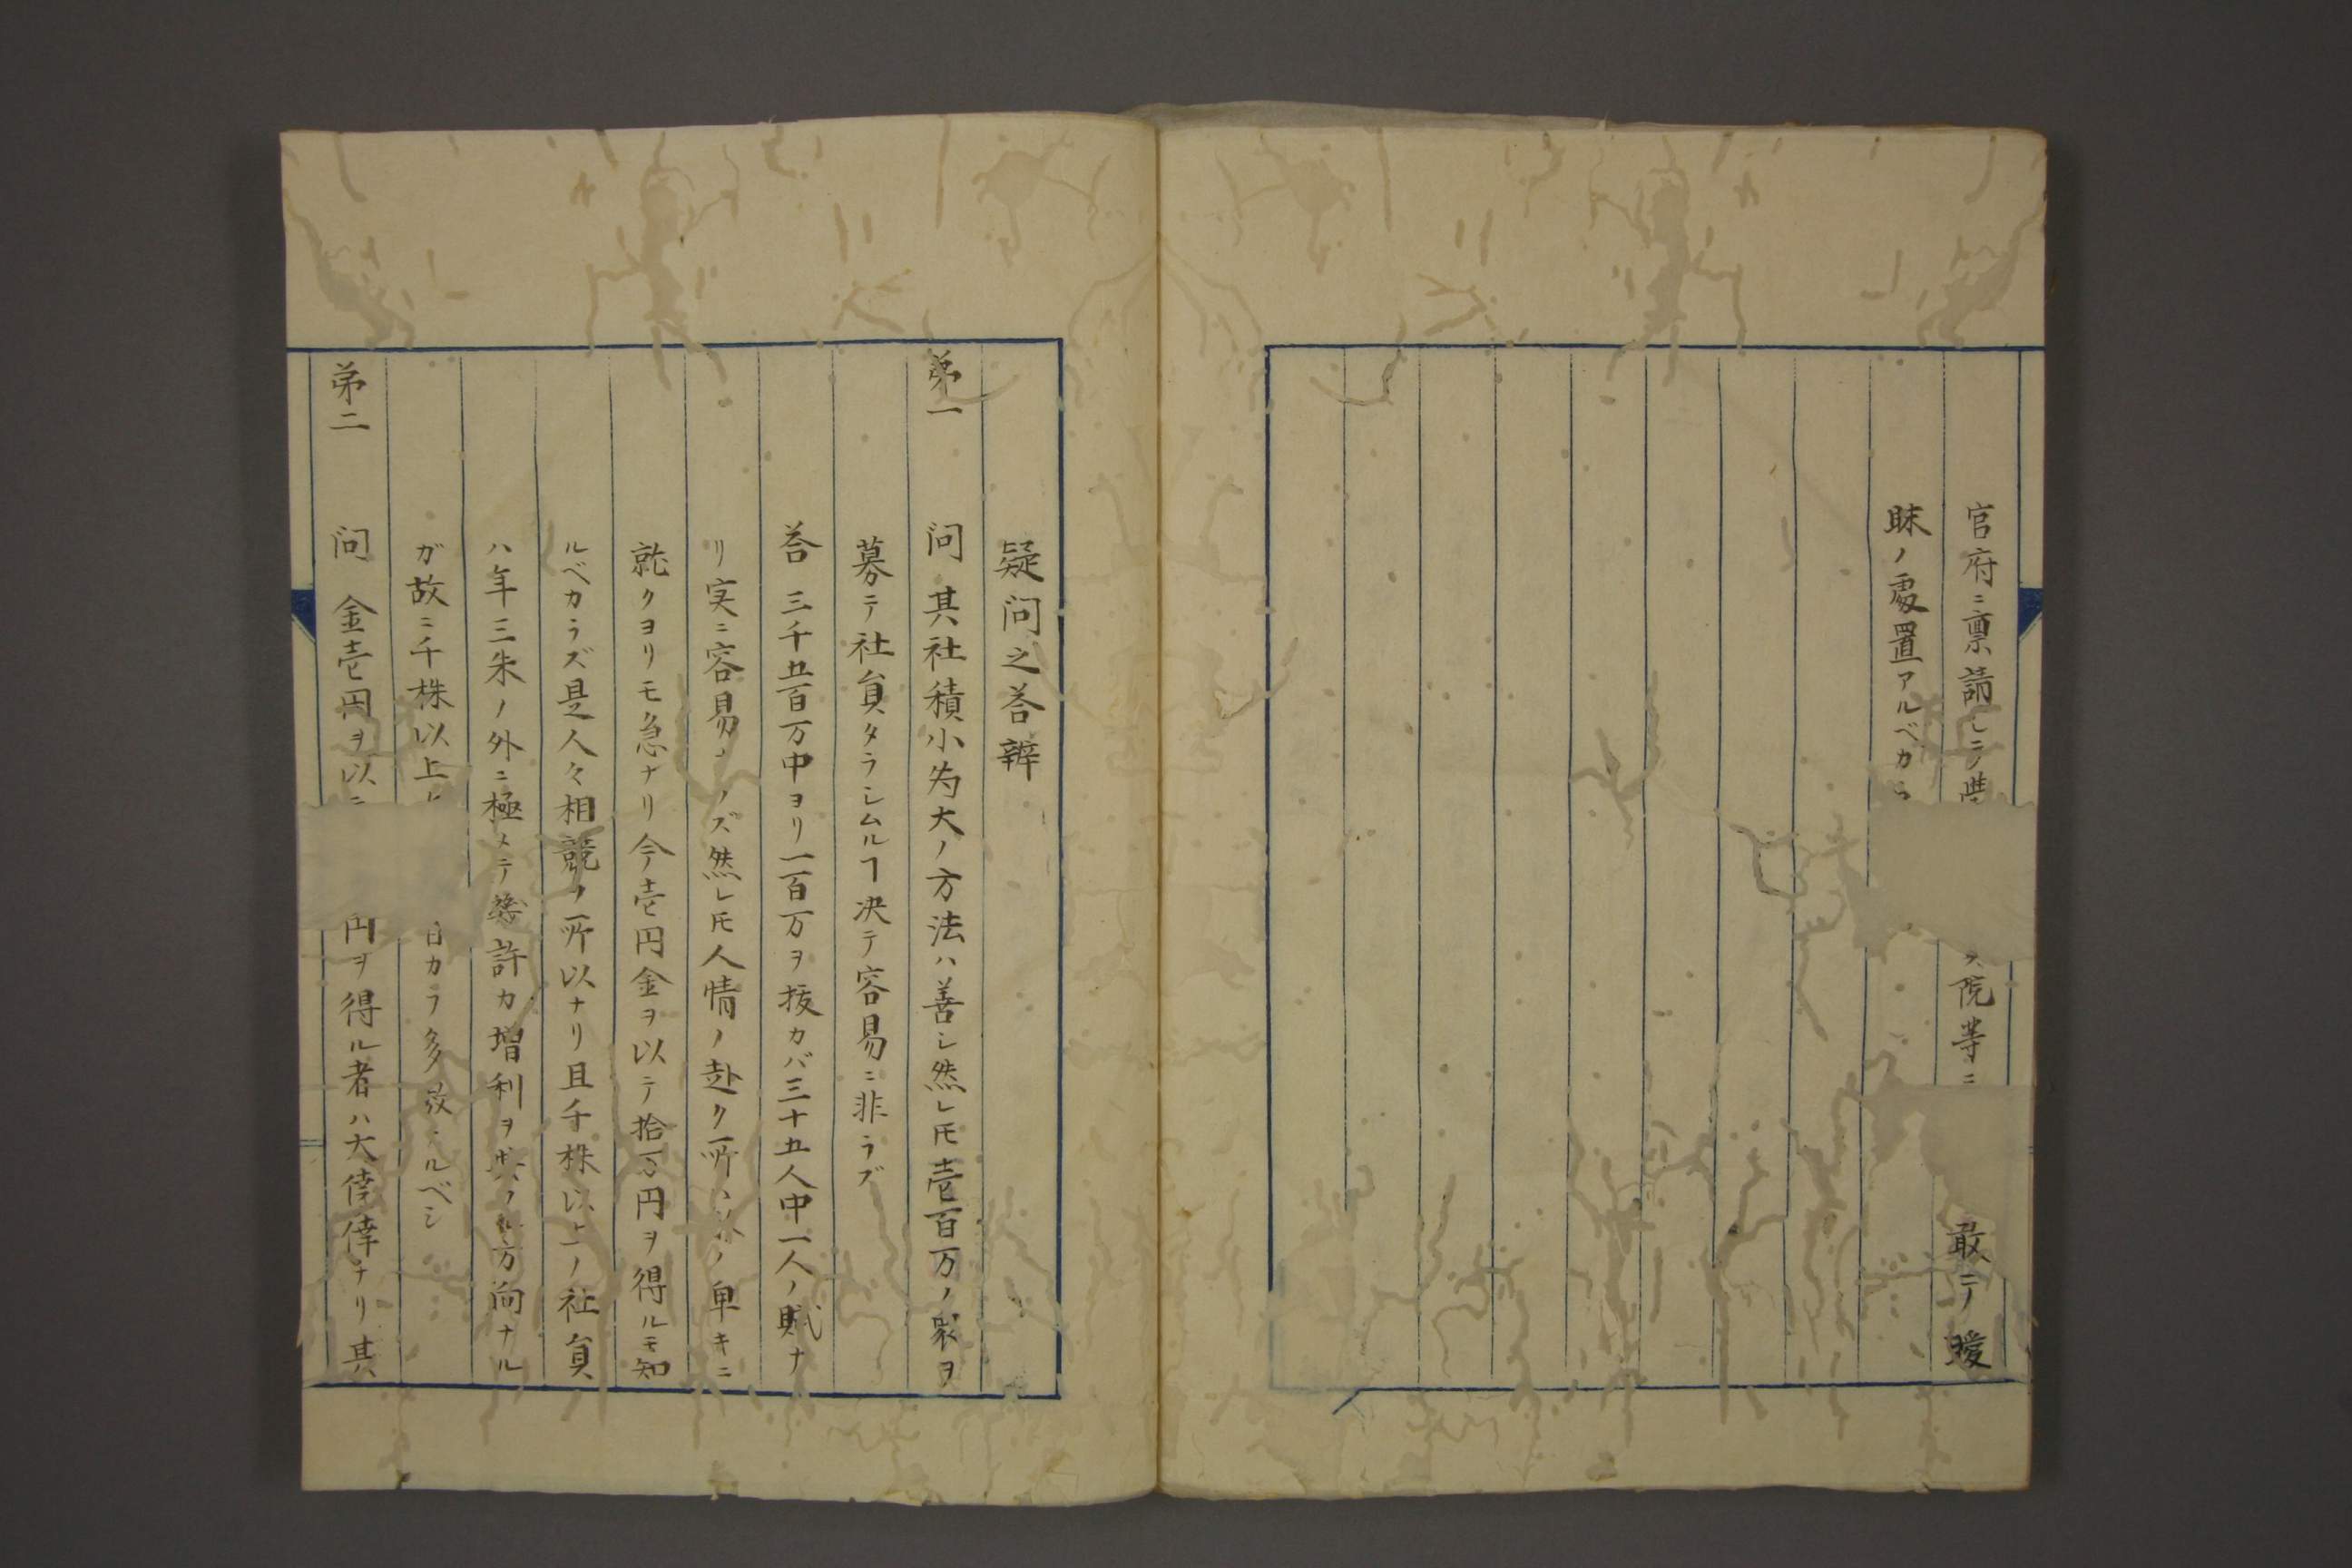 官府ニ稟請シテ 院等ニ 敢テ曖
昧ノ處置アルベカラ
疑问之答辨
第一 问 其社積小為大ノ方法ハ善シ然レ𪜈壱百万ノ衆ヲ
募テ社員タラシムルヿ决テ容易ニ非ラズ
答 三千五百万中ヨリ一百万ヲ抜カバ三十五人中一人ノ賦ナ
リ実ニ容易 ズ然レ𪜈人情ノ赴ク所 ノ卑キニ
就クヨリモ急ナリ今壱円金ヲ以テ拾万円ヲ得ルモ知
ルベカラズ是人々相競フ所以ナリ且千株以上ノ社員
ハ年三朱ノ外ニ極メテ 許カ増利ヲ 方向ナル
ガ故ニ千株以上 自カラ多 ルベシ
第二 问 金壱円ヲ以 円ヲ得ル者ハ大倖倖ナリ其